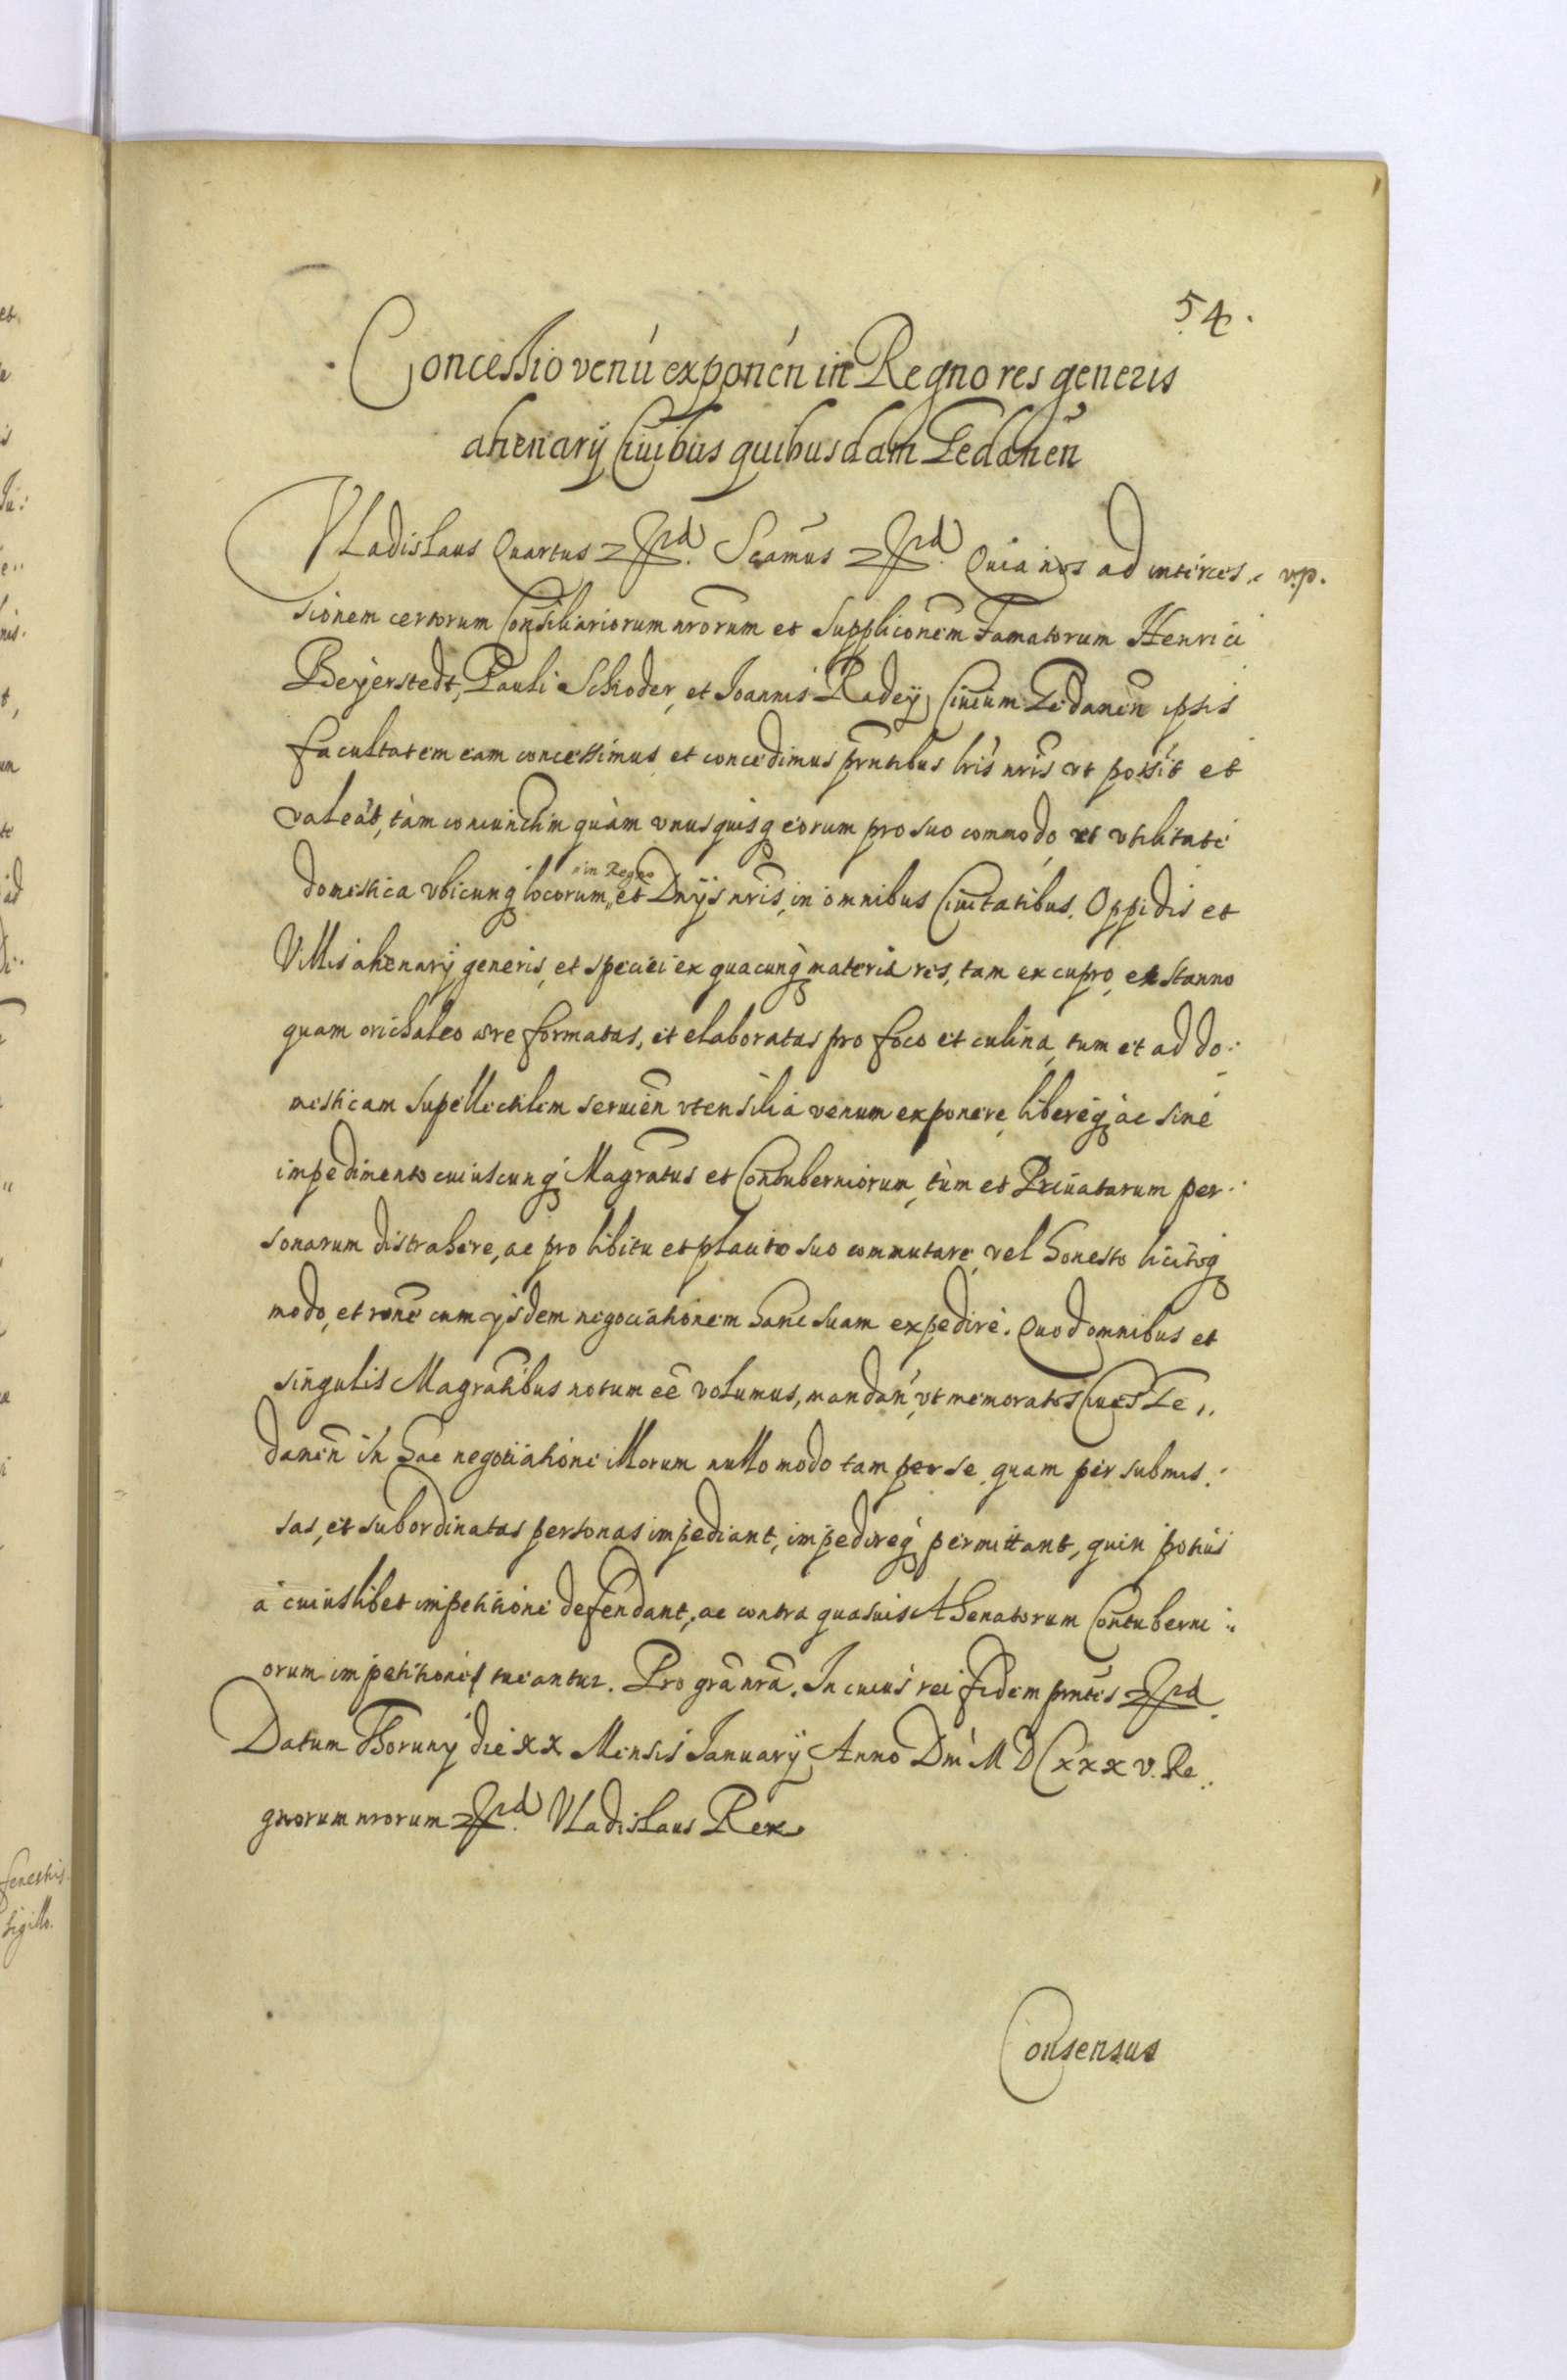 54.
Concessio venú exponén in Regno res generis
ahenarÿ Ciuibus quibusdam Gedanen̄
VLadislaus Quartus Scamus Quia nos ad interces- v.p.
sionem certorum Consiliariorum nrorum et Suppliconem Famatorum Henrici
Beyerstedt, Pauli Schoder, et Ioannis Radeÿ Ciuium Gedanen̄ ipsis
facultatem eam concessimus et concedimus prntibus lris nris vt possit et
valeat, tàm coniunctim quàm vnusquisq eorum pro suo commodo et vtilitate
domestica vbicunq locorum „in Regno et Dnÿs nris, in omnibus Ciuitatibus, Oppidis et
Villis ahenarÿ generis, et speciei ex quacunq materia res, tam ex cupro, ex stanno
quam orichalco aere formatas, et elaboratas pro foco et culina, tum et ad do-
mesticam supellectilem seruien̄ vtensilia venum exponere, libereq ac sine
impedimento cuiuscunq Magratus et Contuberniorum, tùm et Priuatarum per-
sonarum distrahere, ac pro libitu et placito suo commutare, vel honesto licitoq
modo, et rone cum ÿsdem negociationem hanc suam expedire. Quod omnibus et
singulis Magratibus notum eē volumus, mandan̄, vt memoratos Ciues Ge„
danen̄ in hac negotiatione illorum nullo modo tam per se quam per submis-
sas, et subordinatas personas impediant, impedireq permittant, quin potius
à cuiuslibet impetitione defendant, ac contra quasuis Ahenatorum Contuberni-
orum impetitiones tueantur. Pro gra nra. In cuius rei fidem prntes
Datum Thorunÿ die xx Mensis Ianuarÿ Anno Dni M D C xxx v. Re„
gnorum nrorum VLadislaus Rex
Consensus